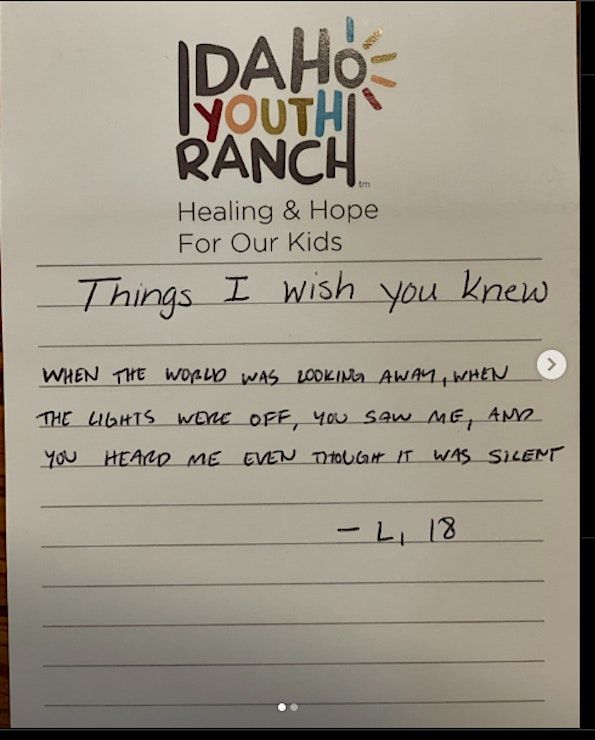 IDAHO
YOUTH
RANCH™
Healing & Hope
For Our Kids
Things I wish you knew
WHEN THE WORLD WAS LOOKING AWAY, WHEN
THE LIGHTS WERE OFF, YOU SAW ME, AND
YOU HEARD ME EVEN THOUGH IT WAS SILENT
- L, 18